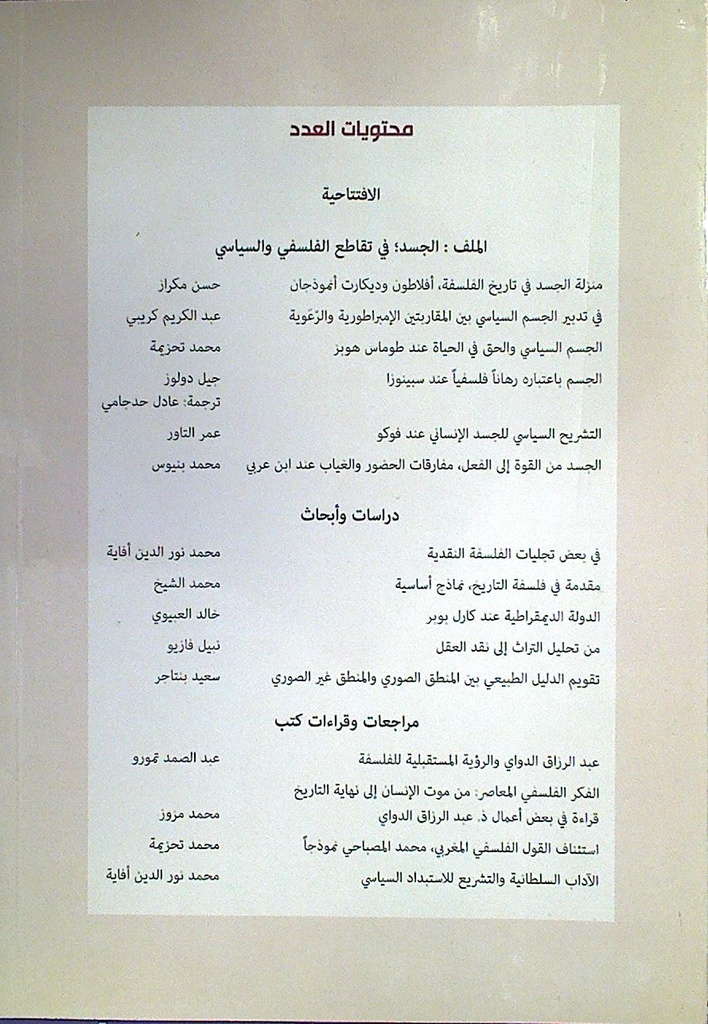 محتويات العدد
الافتتاحية
الملف : الجسد؛ في تقاطع الفلسفي والسياسي
منزلة الجسد في تاريخ الفلسفة، أفلاطون وديكارت أنموذجان حسن مكراز
في تدبير الجسم السياسي بين المقاربتين الإمبراطورية والرّعَوية عبد الكريم كريبي
الجسم السياسي والحق في الحياة عند طوماس هوبز محمد تحزيمة
الجسم باعتباره رهاناً فلسفياً عند سبينوزا جيل دولوز
ترجمة: عادل حدجامي
التشريح السياسي للجسد الإنساني عند فوكو عمر التاور
الجسد من القوة إلى الفعل، مفارقات الحضور والغياب عند ابن عربي محمد بنيوس
دراسات وأبحاث
في بعض تجليات الفلسفة النقدية محمد نور الدين أفاية
مقدمة في فلسفة التاريخ، نماذج أساسية محمد الشيخ
الدولة الديمقراطية عند كارل بوبر خالد العبيوي
من تحليل التراث إلى نقد العقل نبيل فازيو
تقويم الدليل الطبيعي بين المنطق الصوري والمنطق غير الصوري سعيد بنتاجر
مراجعات وقراءات كتب
عبد الرزاق الدواي والرؤية المستقبلية للفلسفة عبد الصمد تمورو
الفكر الفلسفي المعاصر: من موت الإنسان إلى نهاية التاريخ
قراءة في بعض أعمال ذ. عبد الرزاق الدواي محمد مزوز
استئناف القول الفلسفي المغربي، محمد المصباحي نموذجاً محمد تحزيمة
الآداب السلطانية والتشريع للاستبداد السياسي محمد نور الدين أفاية